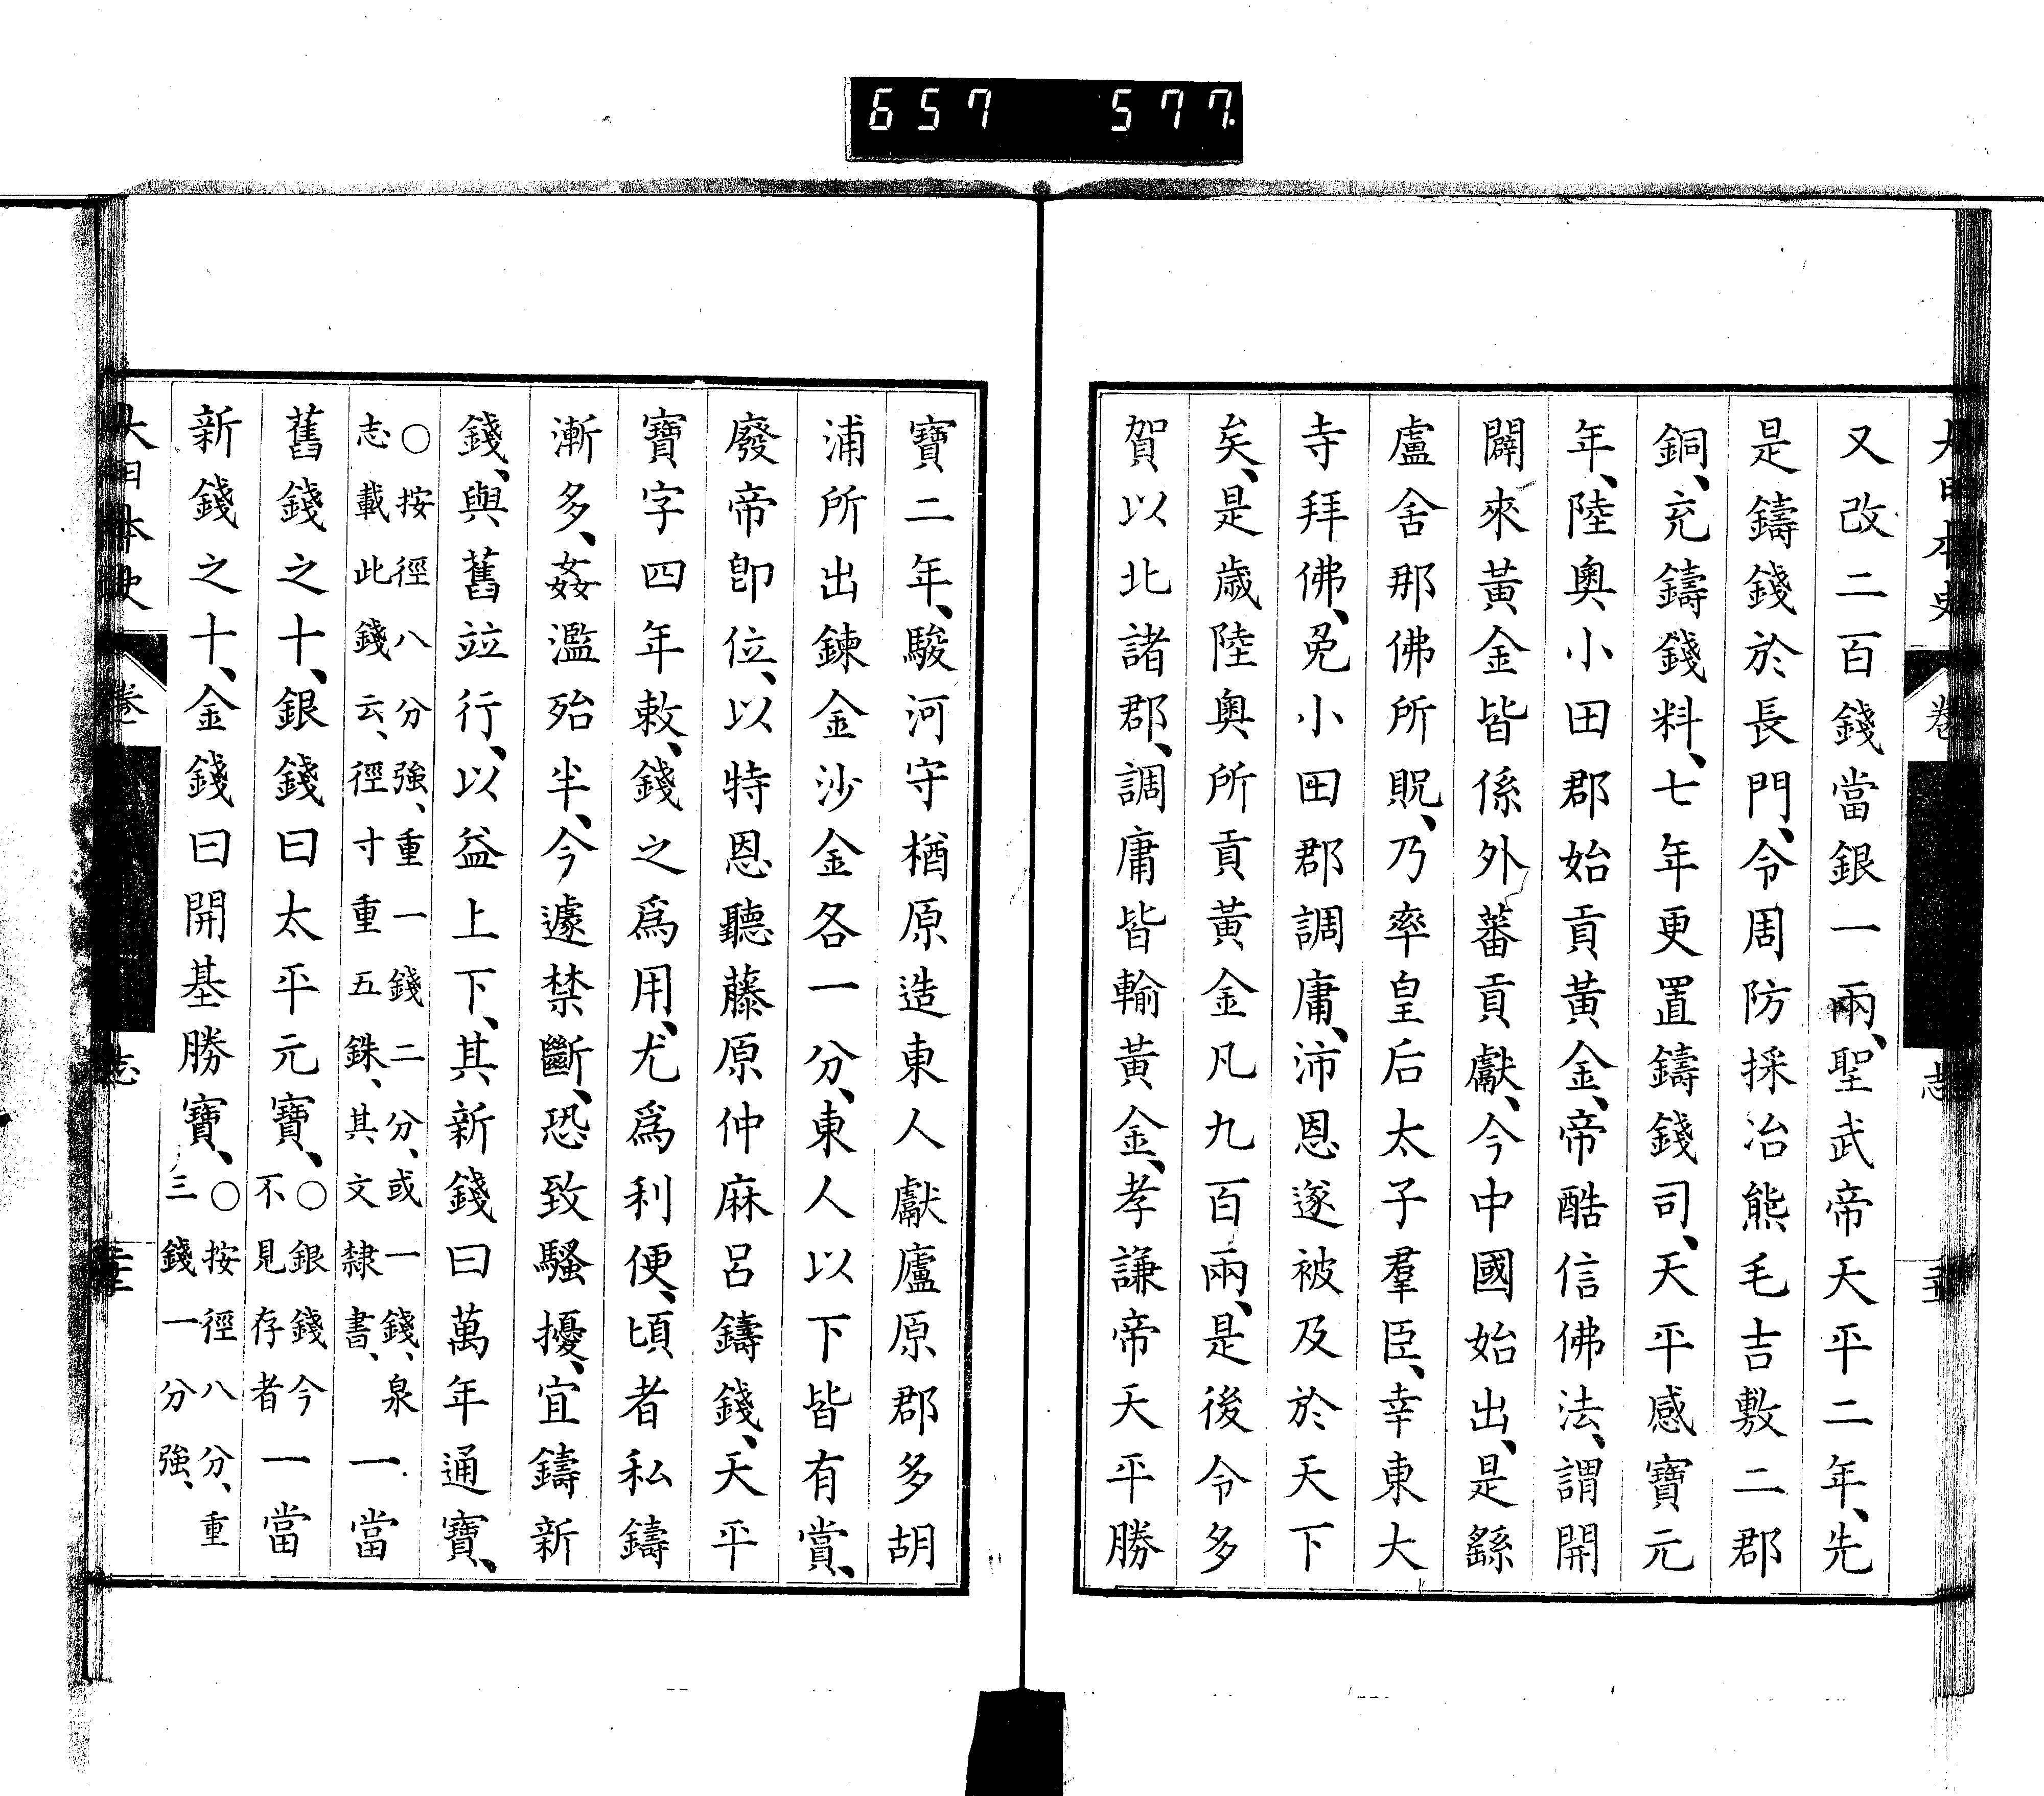 657 577
大日本史 卷 志
又改二百錢當銀一兩、聖武帝天平二年、先
是鑄錢於長門、令周防採冶熊毛吉敷二郡
銅、充鑄錢料、七年更置鑄錢司、天平感寶元
年、陸奧小田郡始貢黃金、帝酷信佛法、謂開
闢來黃金皆係外蕃貢獻、今中國始出、是繇
盧舍那佛所貺、乃率皇后太子羣臣、幸東大
寺拜佛、免小田郡調庸、沛恩遂被及於天下
矣、是歲陸奧所貢黃金凡九百兩、是後令多
賀以北諸郡、調庸皆輸黃金、孝謙帝天平勝
寶二年、駿河守楢原造東人獻廬原郡多胡
浦所出鍊金沙金各一分、東人以下皆有賞、
廢帝卽位、以特恩聽藤原仲麻呂鑄錢、天平
寶字四年敕、錢之爲用、尤爲利便、頃者私鑄
漸多、姦濫殆半、今遽禁斷、恐致騷擾、宜鑄新
錢、與舊竝行、以益上下、其新錢曰萬年通寶、
○按徑八分強、重一錢二分、或一錢、泉
志載此錢云、徑寸重五銖、其文隸書、
一當
舊錢之十、銀錢曰太平元寶、
○銀錢今
不見存者
一當
新錢之十、金錢曰開基勝寶、
○按徑八分、重
三錢一分強、
大日本史 卷 志